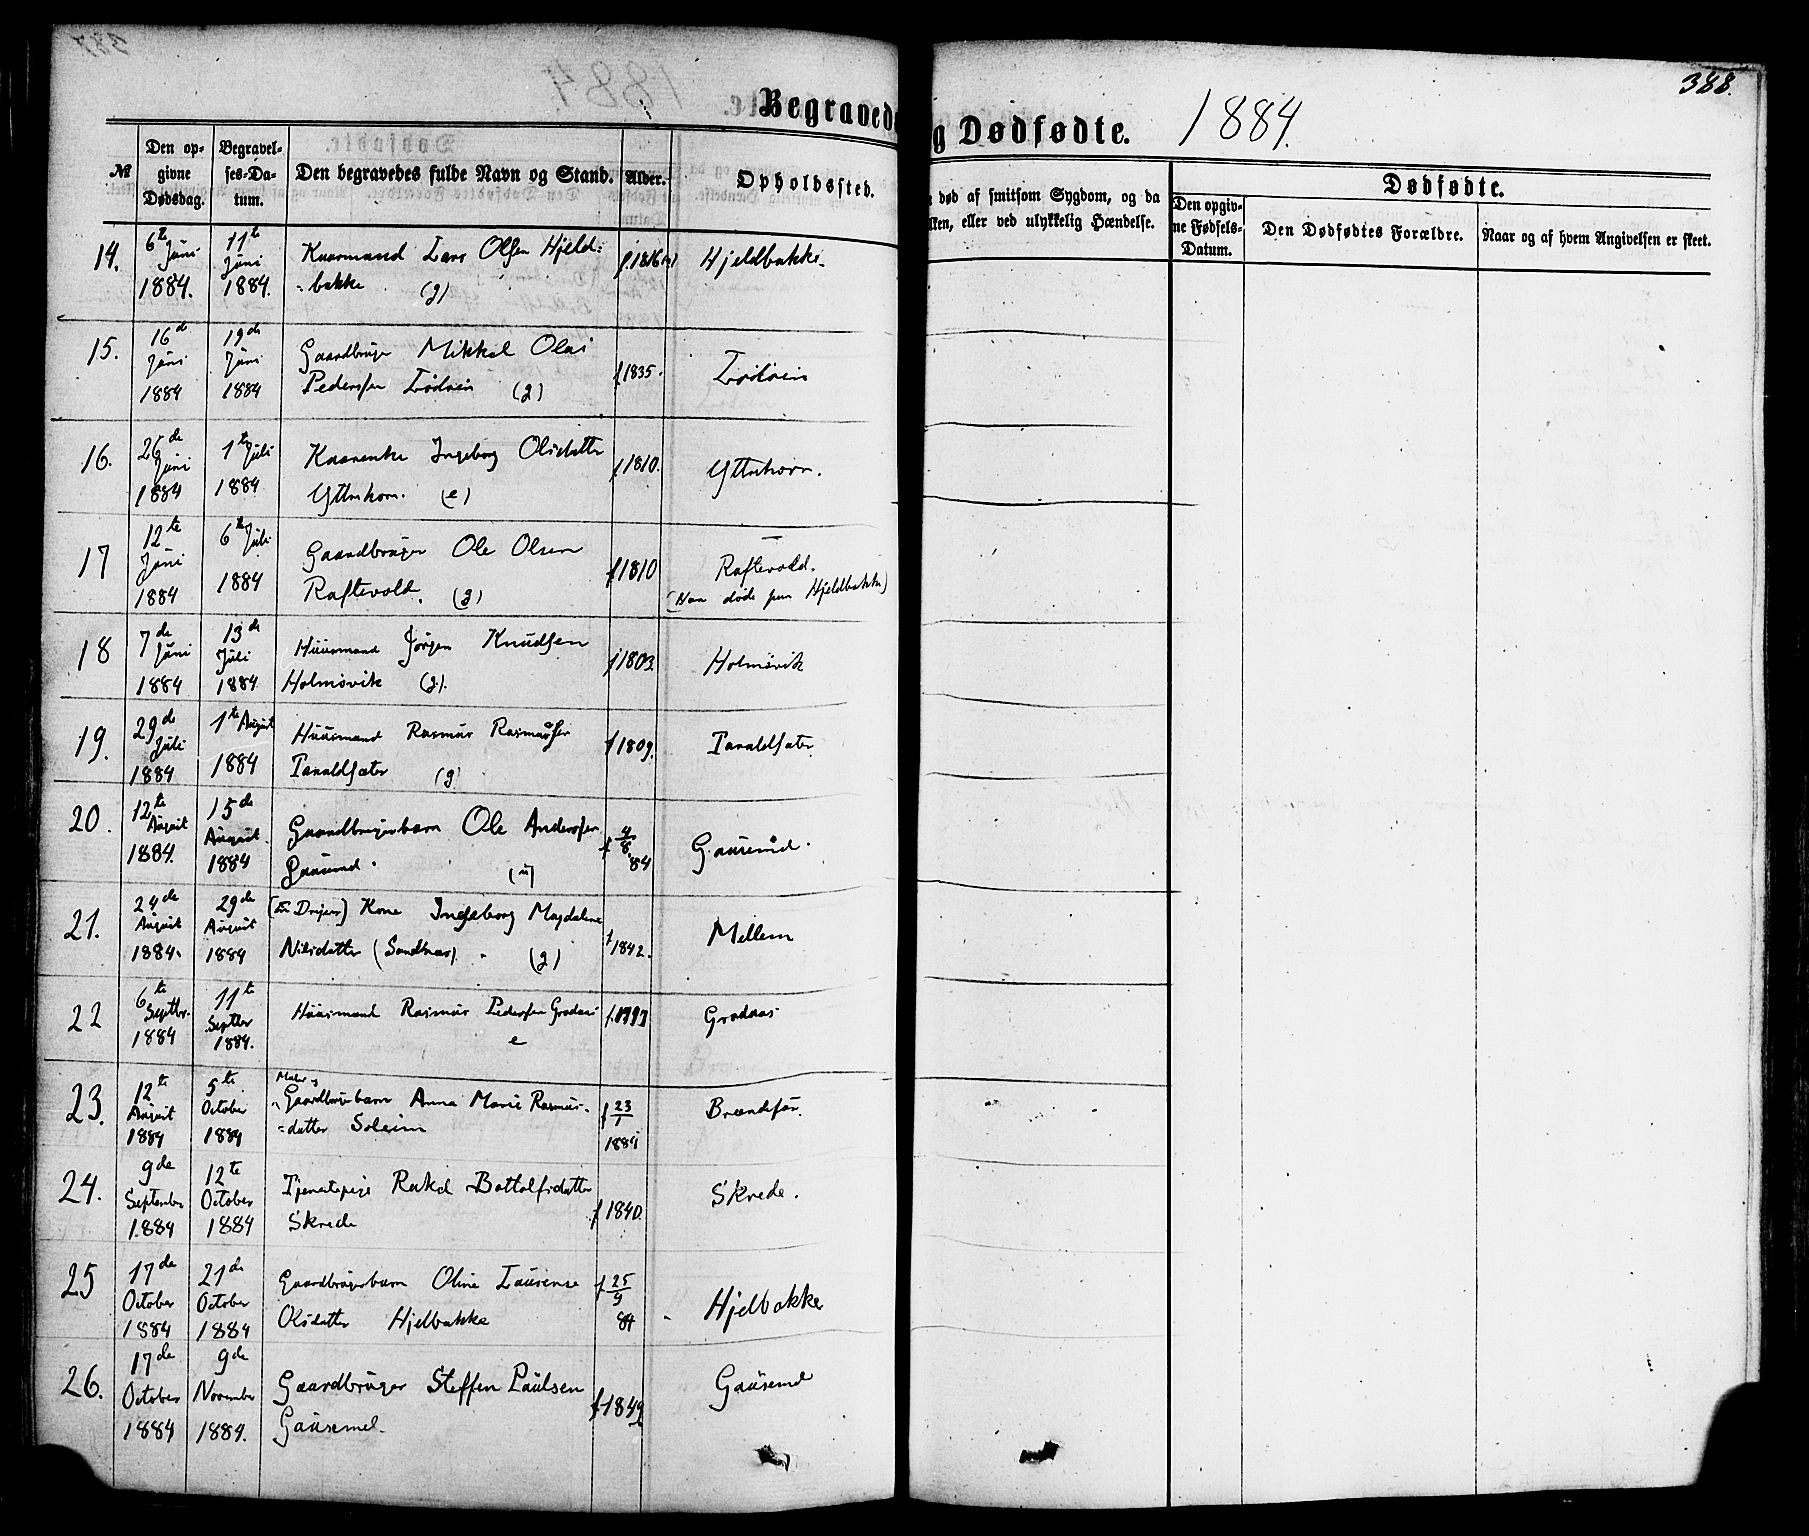 388.
Begravede
g Dødfødte. 1884.
№
Den opgivne Dødsdag.
Begravelses-Datum.
Den begravedes fulde Navn og Stand.
Alder.
Opholdssted.
død af smitsom Sygdom, og da
lken, eller ved ulykkelig Hændelse.
Dødfødte.
Den opgivne Fødsels-Datum.
Den Dødfødtes Forældre.
Naar og af hvem Angivelsen er skeet.
14. 6te Juni 1884. 11te Juni 1884. Kaarmand Lars Olsen Hjeld-
bakke (g) f. 1816 Hjeldbakke
15. 16d Juni 1884 19de Juni 1884 Gaardbruger Mikkel Olai
Pedersen Lødøen (g) f 1835. Lødøen
16. 26de Juni 1884 1te Juli 1884 Kaarenke Ingeborg Olsdatter
Ytterhorn. (e) f 1810. Ytrehorn.
17 12te Juni 1884 6te Juli 1884 Gaardbruger Ole Olsen
Raftevold. (g) f 1810 Raftevold.
(Han døde paa Hjeldbakke)
18 7de Juni 1884 13de Juli 1884 Huusmand Jørgen Knudsen
Holmøvik (g). f 1803. Holmøvik
19. 29de Juli 1884 1te August 1884 Huusmand Rasmus Rasmussen
Taraldsæter (g) f 1809. Taraldsæter
20. 12te August 1884. 15de August 1884 Gaardbrugerbarn Ole Andersen
Gausemd. (u) f 4/8 84 Gausemd.
21. 24de August 1884. 29de August 1884 Kone Ingeborg Magdalene
Nilsdatter (Sandnæs). (g) f 1842. Mellem
22 6te Septbr. 1884 11te Septbr 1884. Huusmand Rasmus Pedersen Grodaas
e Grodaas
23. 12te August 1884 5te October 1884 Gaardbrugerbarn Anna Marie Rasmus-
datter Soleim f 23/7 1884 Brændsør.
24. 9de September 1884 12te October 1884 Tjenestepige Rakel Bottolfsdatter
Skrede f 1840. Skrede.
25 17de October 1884 21de October 1884 Gaardbrugerbarn Oline Laurense
Olsdatter Hjelbakke f 25/9 84 Hjelbakke
26. 17de October 1884 9de November 1884. Gaardbruger Steffen Paulsen
Gausemel. f. 1849 Gausemel